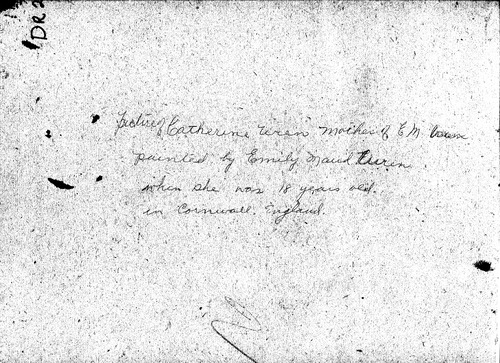 DR2
Picture of Catherine Uren mother of E M Uren
painted by Emily Maud Uren
when she was 18 years old.
in Cornwall, England.